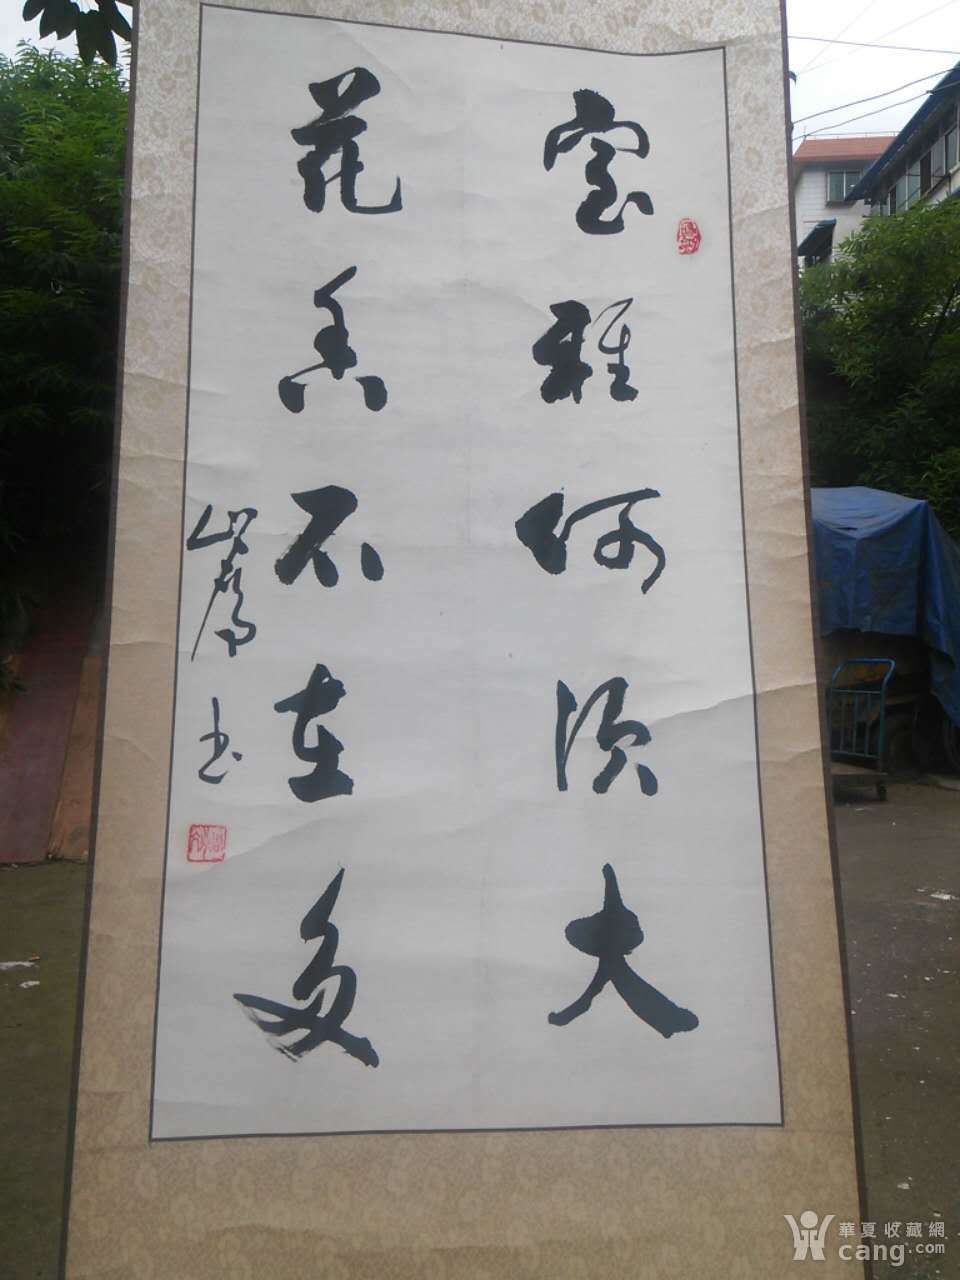 室雅何须大
花香不在多
书
華夏收藏網
cang.com